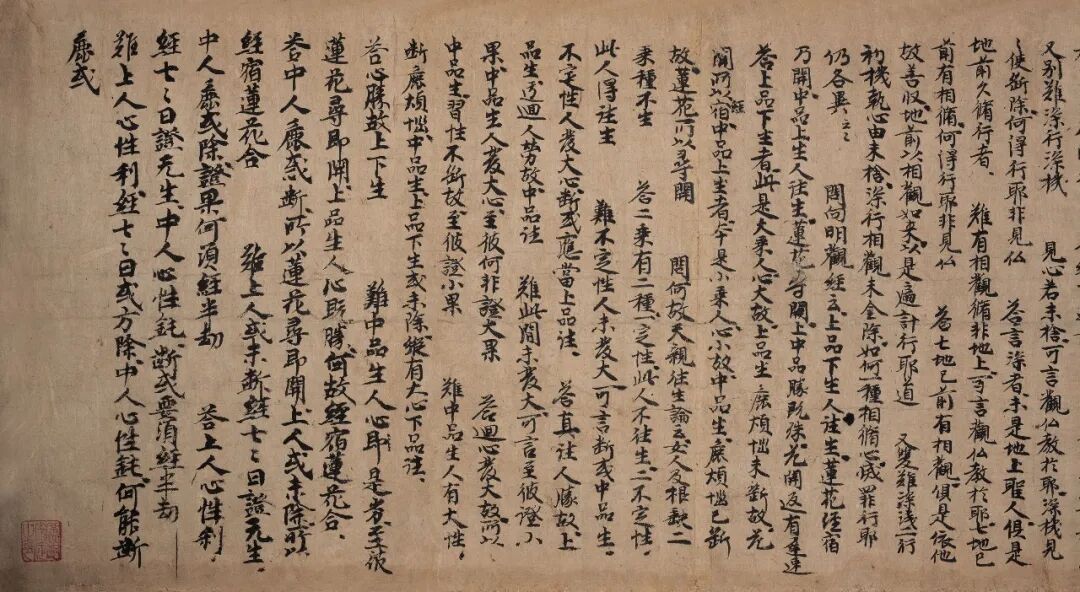 又別難深行淺機 見心若未捨可言觀仏教於耶深機見
〻使斷除何淨行耶非見仏 荅言深者未是地上聖人俱是
地前久脩行者 難有相觀脩非地上可言觀仏教於耶七地已
前有相脩何淨行耶非見仏 荅七地已前有相觀俱是依他
故善收地前以相觀如來六是遍計行耶道 又雙難深淺二行
初機執心由未捨深行相觀未全除如何一種相脩心滅罪行耶
仍各異〻 問向明觀經云上品下生人往生蓮花經宿
乃開中品上生人往生蓮花尋開上中品勝既殊花開返有遲速
荅上品下生者此是大乘人心大故上品生麁煩惱未斷故花
開所以經宿中品上生者本是小乘人心小故中品生麁煩惱已斷
故蓮花所以尋開 問何故天親往生論云女人及根缺二
乘種不生 荅二乘有二種一定性此人不往生二不定性
此人得往生 難不定性人未發大可言斷或中品生
不定性人發大心斷或應當上品注 荅真注人勝故上
品生迂迴人劣故中品注 難此間未發大可言至彼證小
果中品生人發大心至彼何非證大果 荅迴心發大故所以
中品生習性不斷故至彼證小果 難中品生人有大性
斷麁煩惱中品生上品下生或未除縱有大心下品注
荅心勝故上下生 難中品生人心耶是劣至彼
蓮花尋即開上品生人心既勝何故經宿蓮花合
荅中人麁或斷所以蓮花尋即開上人或未除所以
經宿蓮花合 難上人或未斷經七〻日證无生
中人麁或除證果何須經半劫 荅上人心性利
經七〻日證无生中人心性鈍斷或要須經半劫
難上人心性利經七〻日或方除中人心性鈍何能斷
麁或